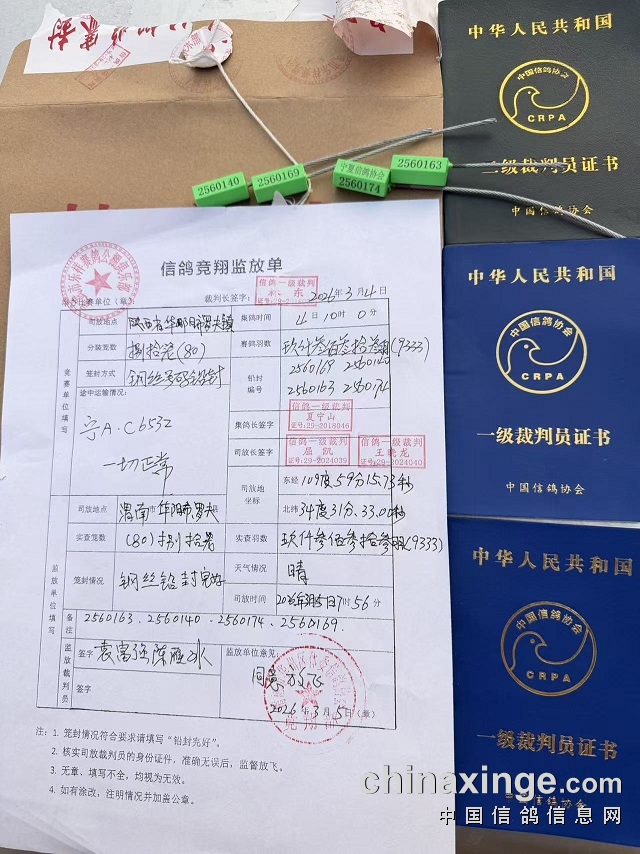 中华人民共和国
中国信鸽协会
CRPA
一级裁判员证书
中国信鸽协会
2560140
2560169
宁夏信鸽协会
2560174
2560163
信鸽竞翔监放单
裁判长签字:
信鸽一级裁判
2026年3月4日
司放地点
集鸽时间
4日10时0分
分装笼数
捌拾笼(80)
赛鸽羽数
玖仟叁佰叁拾叁羽(9333)
笼封方式
铅封编号
2560169 2560140
2560163 2560174
竞赛单位填写
途中运输情况:
宁A·C6532
一切正常
集鸽长签字
信鸽一级裁判
夏宁山
证号:29-2018046
司放长签字
信鸽一级裁判
屈凯
证号:29-2024039
信鸽一级裁判
王晓龙
证号:29-2024040
司放地坐标
东经109度59分15.73秒
北纬34度31分33.00秒
司放地点
渭南市华阴市罗夫
实查笼数
(80)捌拾笼
实查羽数
玖仟叁佰叁拾叁羽(9333)
笼封情况
钢丝铅封完好
天气情况
晴
司放时间
2026年3月5日7时56分
监放单位填写
备注
2560163、2560140、2560174、2560169.
监放裁判员
签字
签字
监放单位意见:
同意放飞
2026年3月5日(章)
注:1. 笼封情况符合要求请填写“铅封完好”。
2. 核实司放裁判员的身份证件,准确无误后,监督放飞。
3. 无章、填写不全,均视为无效。
4. 如有涂改,注明情况并加盖公章。
中华人民共和国
中国信鸽协会
CRPA
一级裁判员证书
中国信鸽协会
中华人民共和国
中国信鸽协会
CRPA
一级裁判员证书
中国信鸽协会
chinaxinge.com
中国信鸽信息网